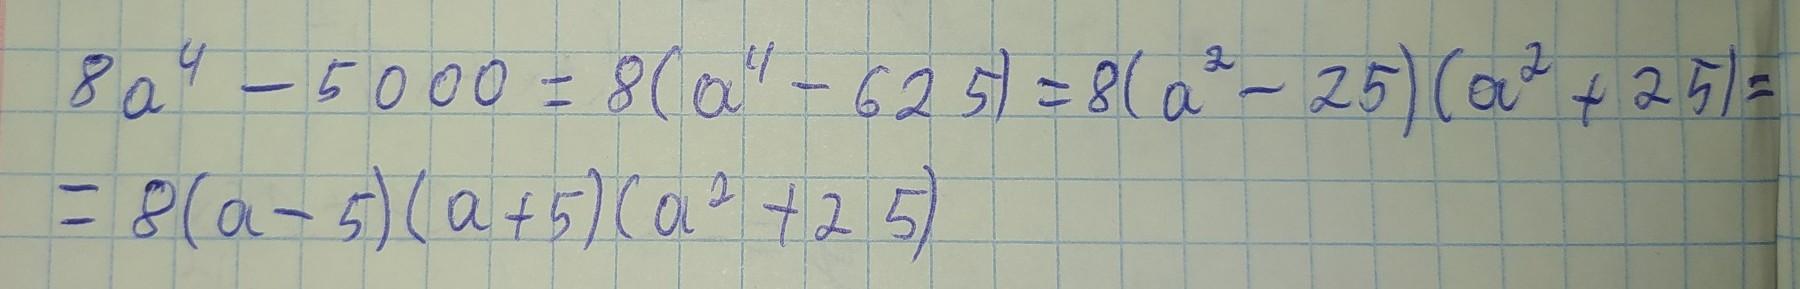 8a⁴ - 5000 = 8(a⁴ - 625) = 8(a² - 25)(a² + 25) =
= 8(a - 5)(a + 5)(a² + 25)